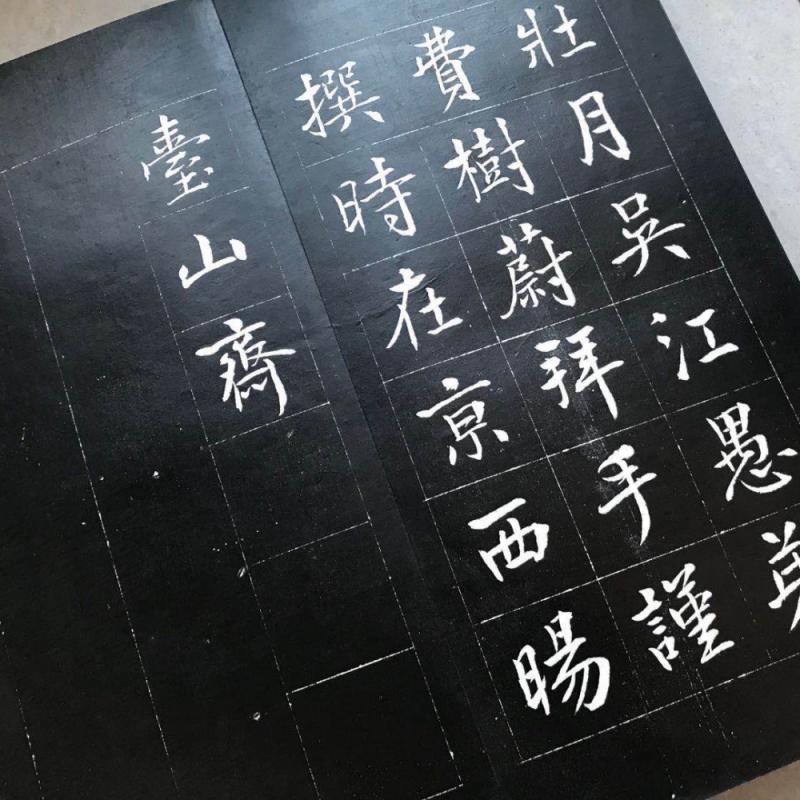 壯月吳江愚
費樹蔚拜手謹
撰時在京西暘
臺山齋